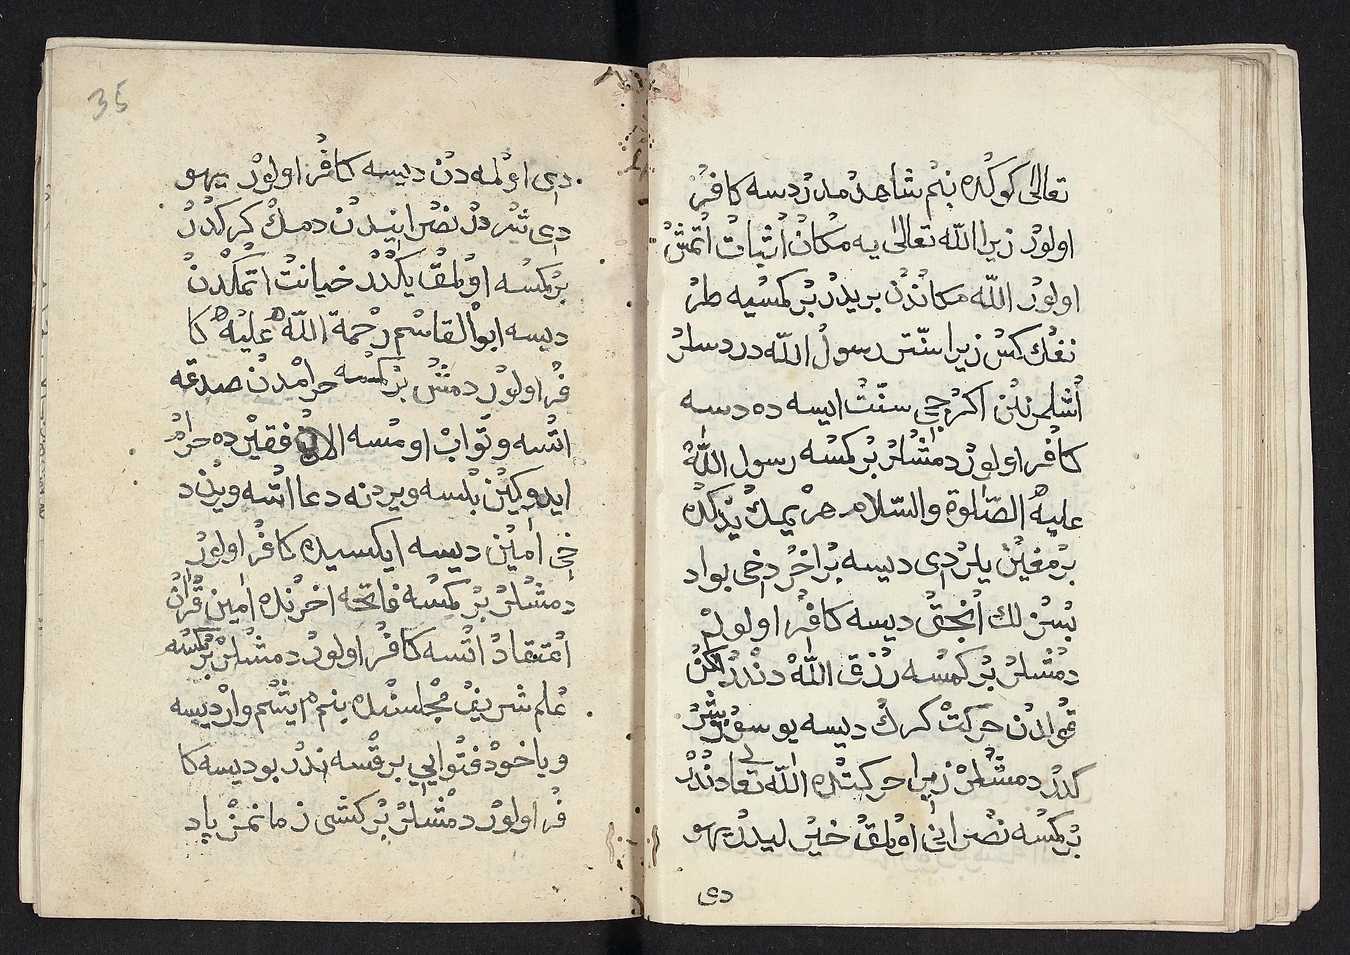 تعالى كوكده بنم شاهدمدر دسه كافر
اولور زيرا الله تعالى يه مكان اثبات اتمش
اولور الله مكاندن بريدر بر كمسيه طر
نغك كس زيرا سنتى رسول الله در دسلر
اشلمزين اكرچى سنت ايسه ده دسه
كافر اولور دمشلر بر كمسه رسول الله
عليه الصلوة والسلام هر يمك يدكده
برمغين يلردى ديسه براخر دخى بواد
بسزلك انجق ديسه كافر اولور
دمشلر بر كمسه رزق الله دندر لكن
قولدن حركت كرك ديسه بو سوز شر
كدر دمشلر زيرا حركتده الله تعالى دندر
بر كمسه نصرانى اولمق خير ليدر يهو
دى
35
دى اولمه دن ديسه كافر اولور يهو
دى شر در نصرانيدن دمك كركدر
بر كمسه اولمق يكدر خيانت اتمكدن
ديسه ابوالقاسم رحمة الله عليه كا
فر اولور دمش بر كمسه حرامدن صدقه
اتسه و ثواب اومسه الان فقيرده حرام
ايدوكين بلسه ويردنه دعا اتسه ويرن د
خى امين ديسه ايكسيده كافر اولور
دمشلر بر كمسه فاتحه اخرنده امين قران
اعتقاد اتسه كافر اولور دمشلر بر كمسه
علم شريف مجلسنده بنم نه ايشم وار ديسه
وياخود فتوايى برقسه ندر بو ديسه كا
فر اولور دمشلر بر كشى زمانمز پاد